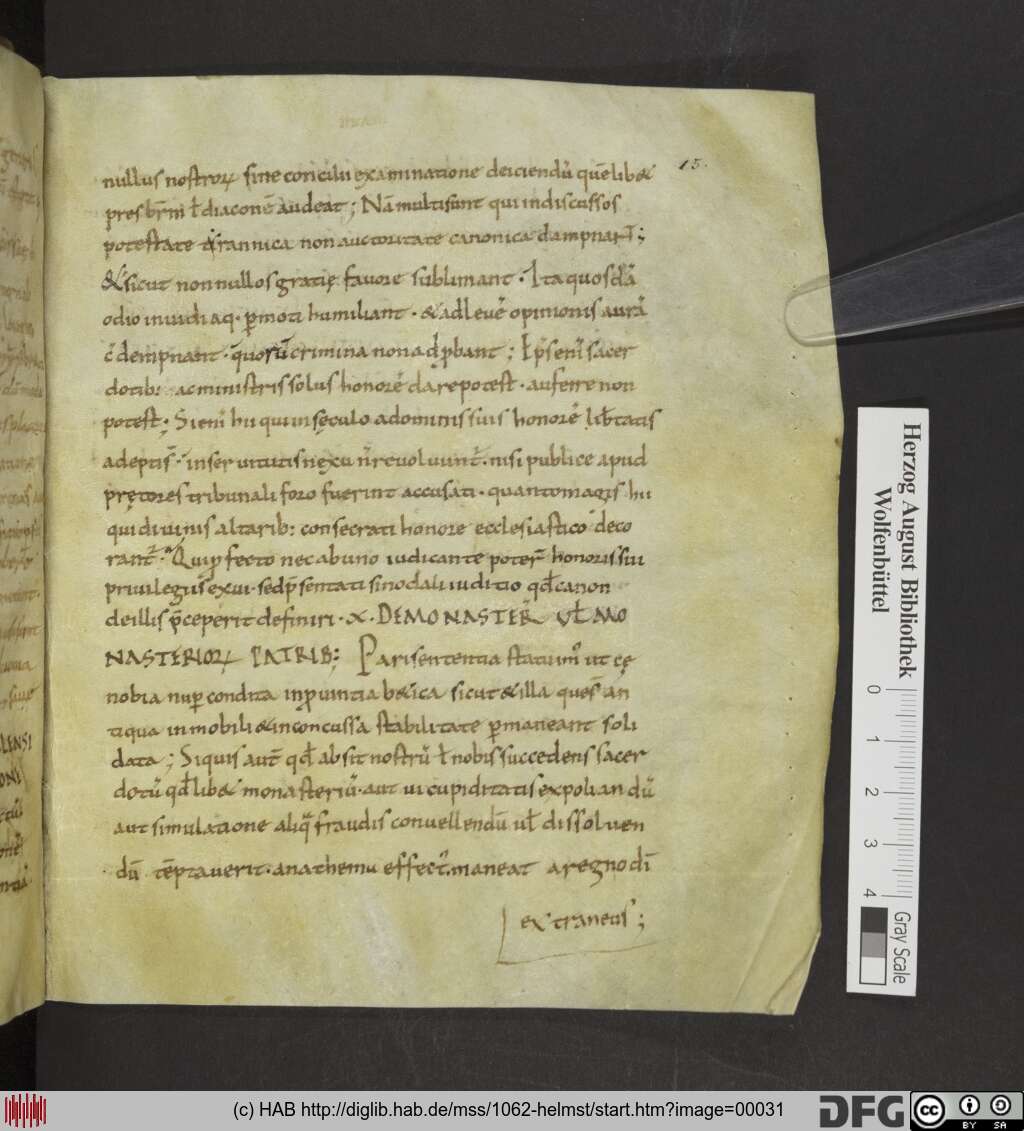 15.
nullus nostroꝝ sine concilii examinatione deiciendū quēlib&
presbr̄m ł diaconē audeat; Nā multi sunt qui indiscussos
potestate tyrannica non auctoritate canonica dampnant;
& sicut non nullos gratię favore sublimant. Ita quosdā
odio invidiaq. ꝑmoti humiliant. & ad levē opinionis aurā
cōdempnant. quorū crimina non adꝓbant; Ep̄s enī sacer
dotib: ac ministris solus honorē dare potest. auferre non
potest; Si enī hii qui in sęculo a dominis suis honorē lib̄tatis
adeptis. in servitutis nexu n̄ revolvunt̄. nisi publice apud
prętores tribunali foro fuerint accusati. quanto magis hii
qui divinis altarib: consecrati honore ecclesiastico deco
rant̄. Qui ꝓfecto nec ab uno iudicante poterit honoris sui
privilegiis exui. sed p̄sentati sinodali iuditio qđ canon
de illis p̄ceperit definiri. X. DE MONASTER̄ VƚMO
NASTERIOꝝ PATRIB: Pari sententia statuim̄ ut cę
nobia nuꝑ condita in ꝓvintia b&ica sicut & illa que s̄ an
tiqua inmobili & inconcussa stabilitate ꝑmaneant soli
data; Si quis aut̄ qđ absit nostrū ł nobis succedens sacer
dotū qđlib& monasteriū. aut vi cupiditatis expoliandū
aut simulatione aliq̄ fraudis convellendū uł dissolven
dū tēptaverit. anathema effect̄. maneat a regno dī
extraneus;
Herzog August Bibliothek
Wolfenbüttel
0 1 2 3 4
Gray Scale
(c) HAB http://diglib.hab.de/mss/1062-helmst/start.htm?image=00031
DFG
cc BY SA